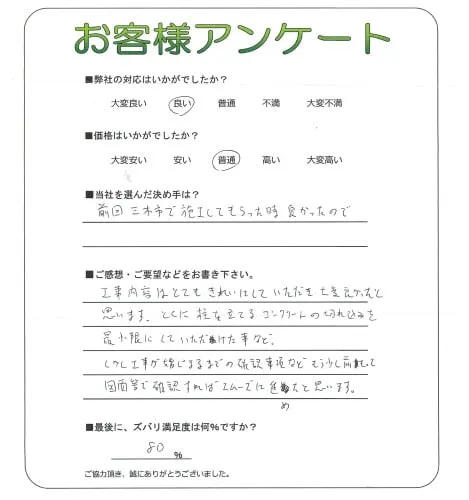 お客様アンケート
■弊社の対応はいかがでしたか?
大変良い 良い 普通 不満 大変不満
■価格はいかがでしたか?
大変安い 安い 普通 高い 大変高い
■当社を選んだ決め手は?
前回 三木市で 施工してもらった時 良かったので
■ご感想・ご要望などをお書き下さい。
工事内容はとても きれいにして いただき 大変良かったと
思います。とくに 柱を立てる コンクリートの切れ込みを
最小限に していただけた事など。
しかし工事が始じまるまでの確認事項など もう少し
図面等で 確認すれば スムーズに 進めたと思います。
■最後に、ズバリ満足度は何%ですか?
80 %
ご協力頂き、誠にありがとうございました。